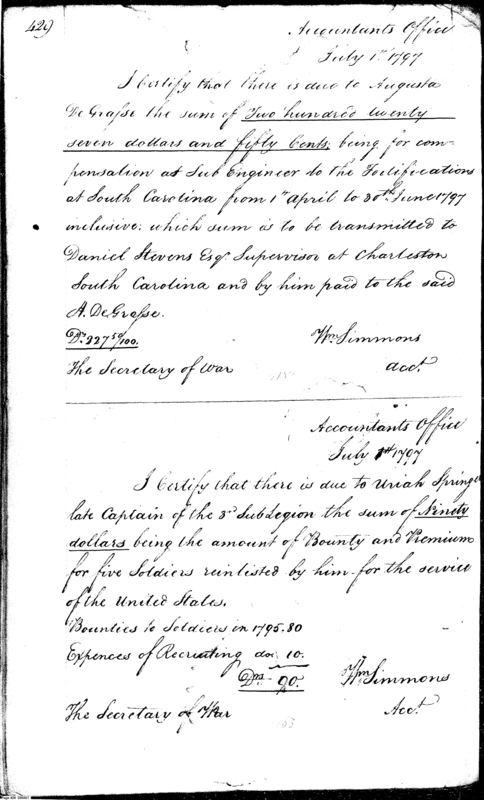 429
Accountants Office
July 1st 1797
I Certify that there is due to Augusta
De Grasse the sum of Two hundred twenty
seven dollars and fifty Cents, being for com-
pensation as Sub Engineer to the Fortifications
at South Carolina from 1st April to 30th June 1797
inclusive; which sum is to be transmitted to
Daniel Stevens Esqr. Supervisor at Charleston
South Carolina and by him paid to the said
A. De Grasse.
Ds. 227 50/100.
Wm Simmons
The Secretary of War
acct.
Accountants Office
July 1st 1797
I Certify that there is due to Uriah Springer
late Captain of the 3d Sub Legion the sum of Ninety
dollars being the amount of Bounty and Premium
for five Soldiers reinlisted by him for the service
of the United States.
Bounties to Soldiers in 1795. 80
Expences of Recruiting do. 10.
Drs. 90.
Wm Simmons
The Secretary of War
Acct.